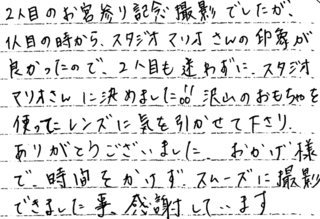 2人目のお宮参り記念撮影でしたが、
1人目の時から、スタジオマリオさんの印象が
良かったので、2人目も迷わずに、スタジオ
マリオさんに決めました!! 沢山のおもちゃを
使ってレンズに気を引かせて下さり、
ありがとうございました。おかげ様
で、時間をかけず、スムーズに撮影
できました事、感謝しています